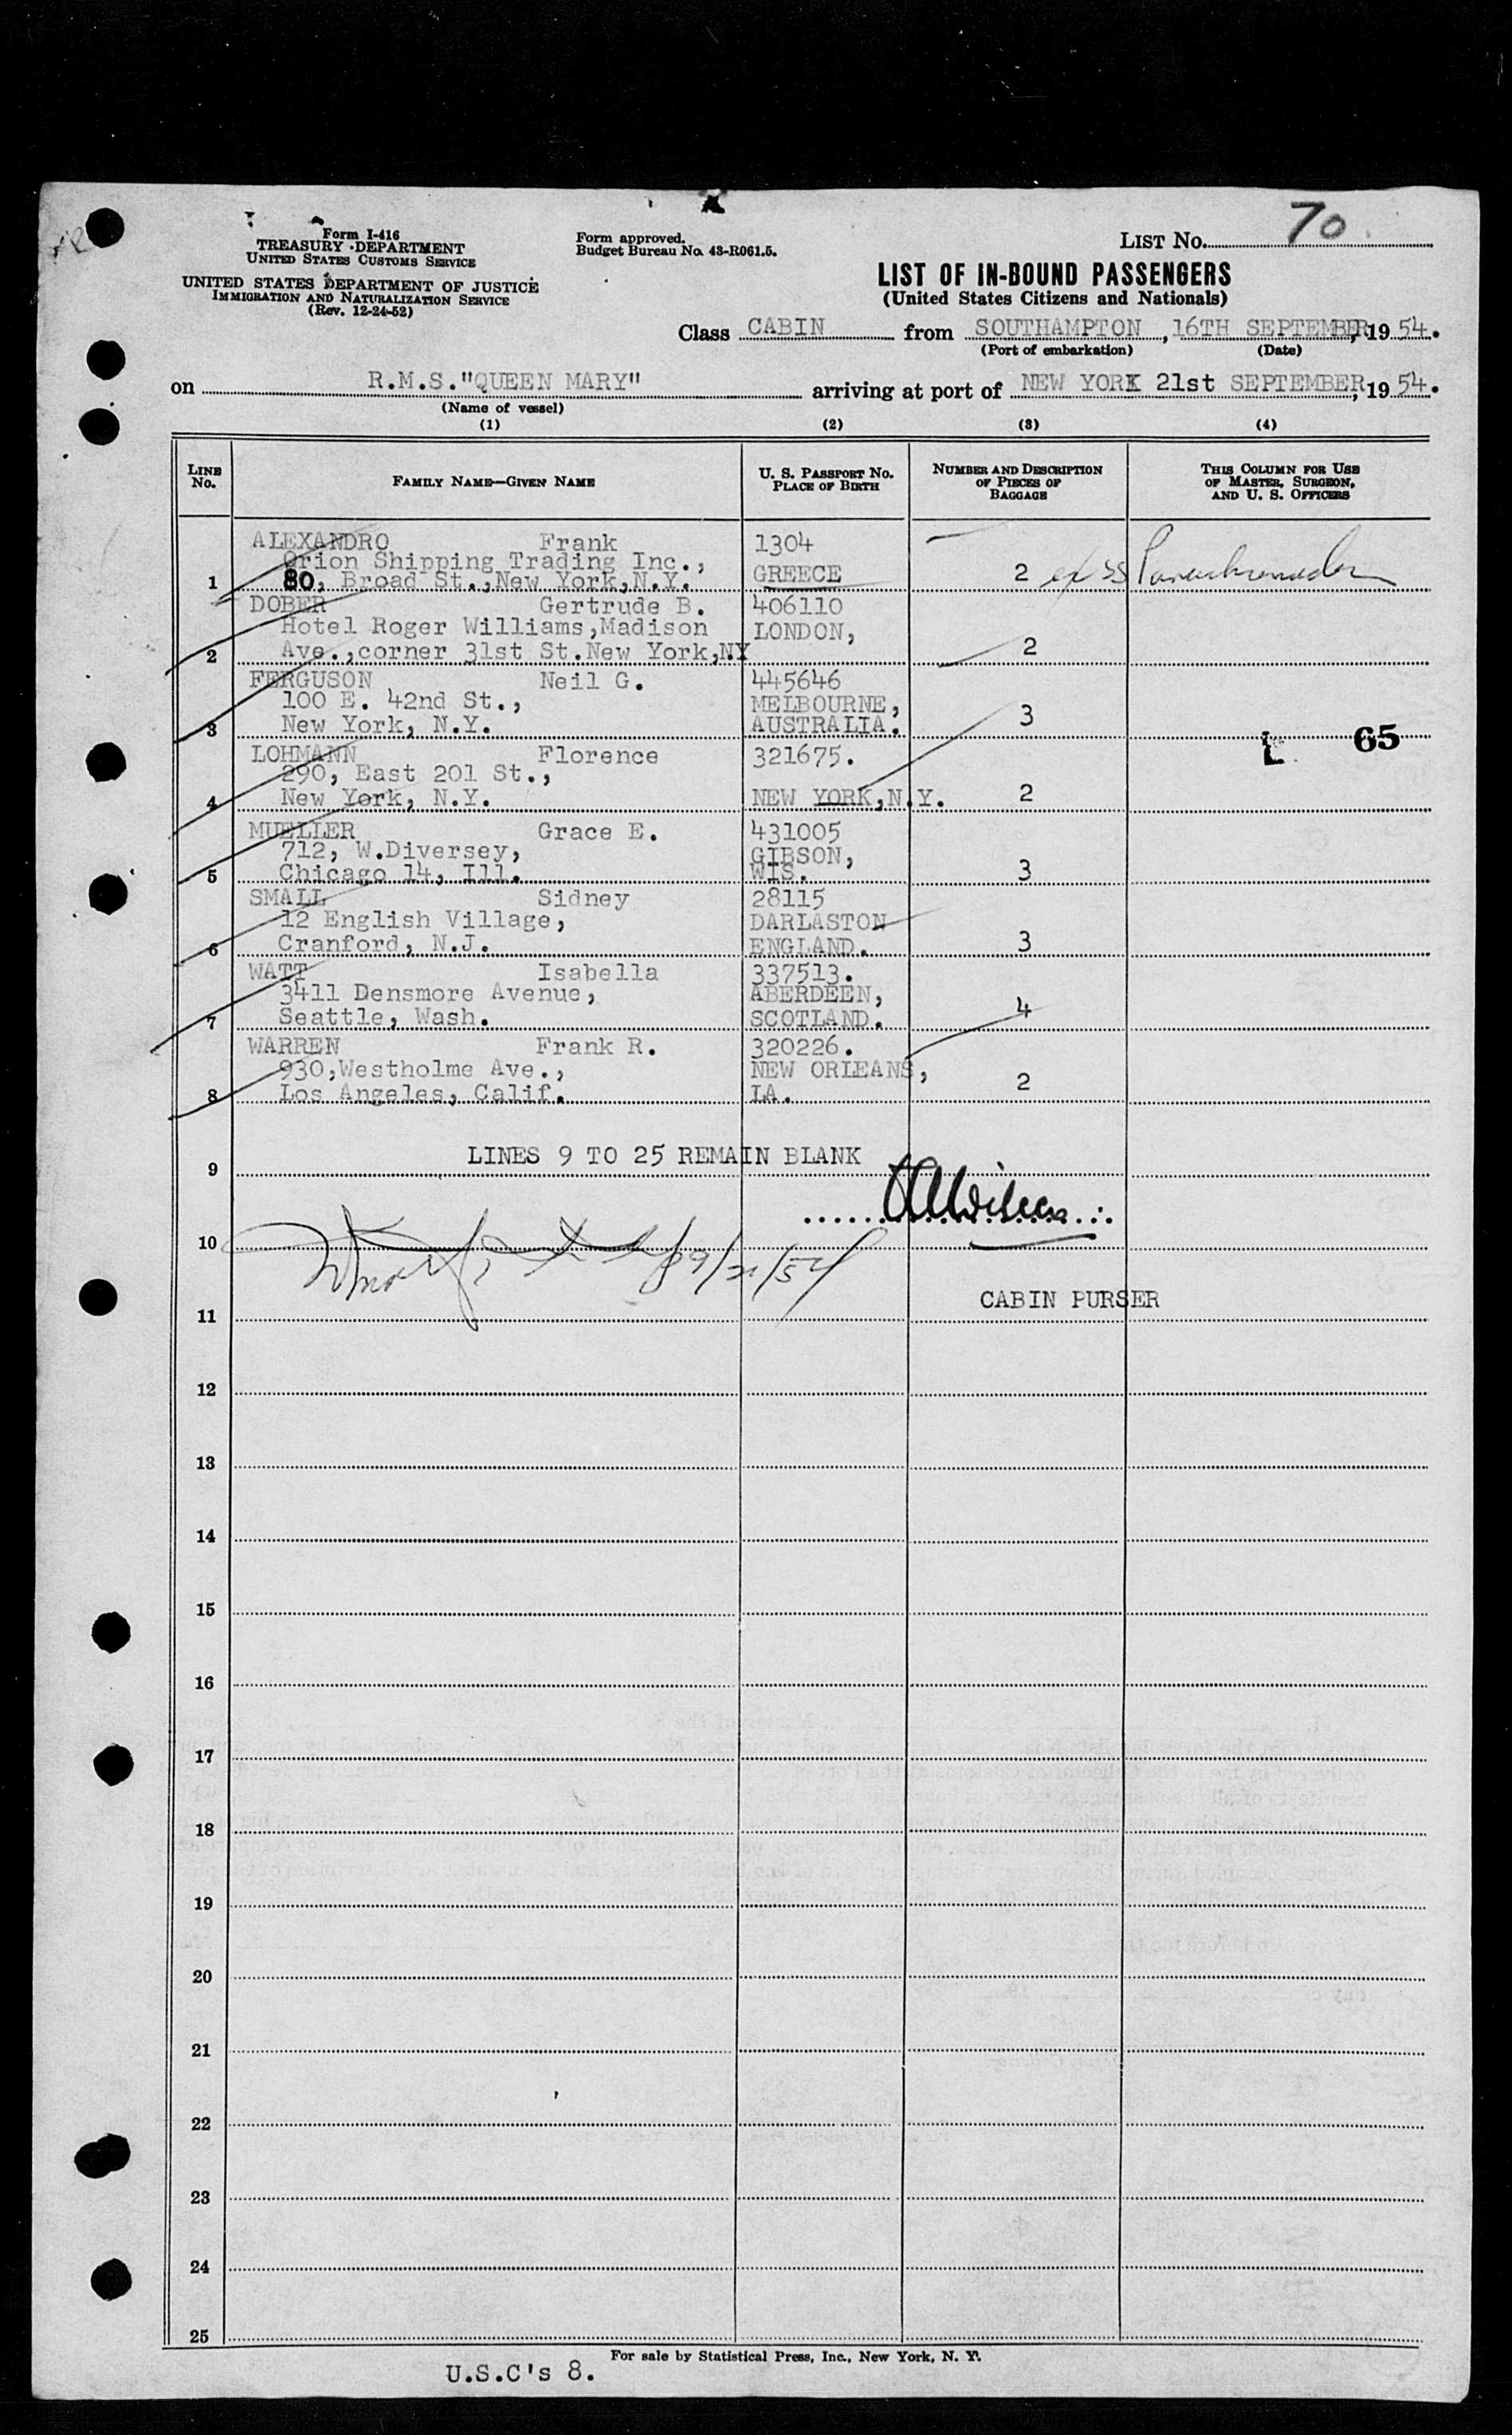 70
Form I-416
TREASURY DEPARTMENT
UNITED STATES CUSTOMS SERVICE
UNITED STATES DEPARTMENT OF JUSTICE
IMMIGRATION AND NATURALIZATION SERVICE
(Rev. 12-24-52)
Form approved.
Budget Bureau No. 43-R061.5.
LIST No.
LIST OF IN-BOUND PASSENGERS
(United States Citizens and Nationals)
Class CABIN from SOUTHAMPTON, 16TH SEPTEMBER, 1954.
(Port of embarkation) (Date)
on R.M.S."QUEEN MARY" arriving at port of NEW YORK 21st SEPTEMBER, 1954.
(Name of vessel)
(1) (2) (3) (4)
LINE No. FAMILY NAME—GIVEN NAME U. S. PASSPORT No. PLACE OF BIRTH NUMBER AND DESCRIPTION OF PIECES OF BAGGAGE THIS COLUMN FOR USE OF MASTER, SURGEON, AND U. S. OFFICERS
ALEXANDRO Frank 1304
Orion Shipping Trading Inc.,
1 80, Broad St.,New York,N.Y. GREECE 2 ex SS
DOBER Gertrude B. 406110
Hotel Roger Williams,Madison LONDON,
2 Ave.,corner 31st St.New York,NY 2
FERGUSON Neil G. 445646
100 E. 42nd St., MELBOURNE,
3 New York, N.Y. AUSTRALIA. 3
65
LOHMANN Florence 321675.
290, East 201 St.,
4 New York, N.Y. NEW YORK,N.Y. 2
MUELLER Grace E. 431005
712, W.Diversey, GIBSON,
5 Chicago 14, Ill. WIS. 3
SMALL Sidney 28115
12 English Village, DARLASTON
6 Cranford, N.J. ENGLAND. 3
WATT Isabella 337513.
3411 Densmore Avenue, ABERDEEN,
7 Seattle, Wash. SCOTLAND. 4
WARREN Frank R. 320226.
930,Westholme Ave., NEW ORLEANS,
8 Los Angeles, Calif. LA. 2
LINES 9 TO 25 REMAIN BLANK
9
10
9/21/54
CABIN PURSER
11
12
13
14
15
16
17
18
19
20
21
22
23
24
25
For sale by Statistical Press, Inc., New York, N. Y.
U.S.C's 8.